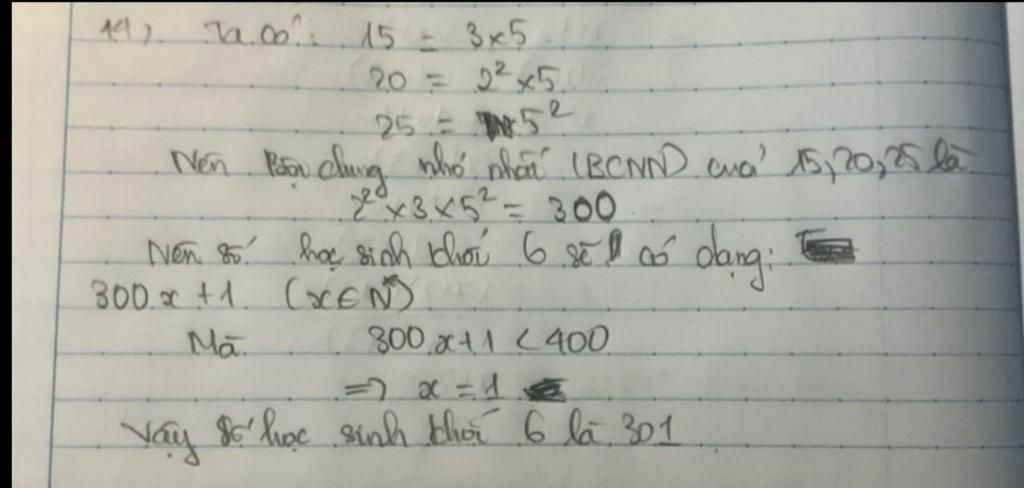 14) Ta có: 15 = 3x5
20 = 2² x 5
25 = 5²
Nên Bội chung nhỏ nhất (BCNN) của 15, 20, 25 là
2² x 3 x 5² = 300
Nên số học sinh khối 6 sẽ có dạng:
300.x + 1 (x ∈ N*)
Mà 300.x + 1 < 400
=> x = 1
Vậy số học sinh khối 6 là 301